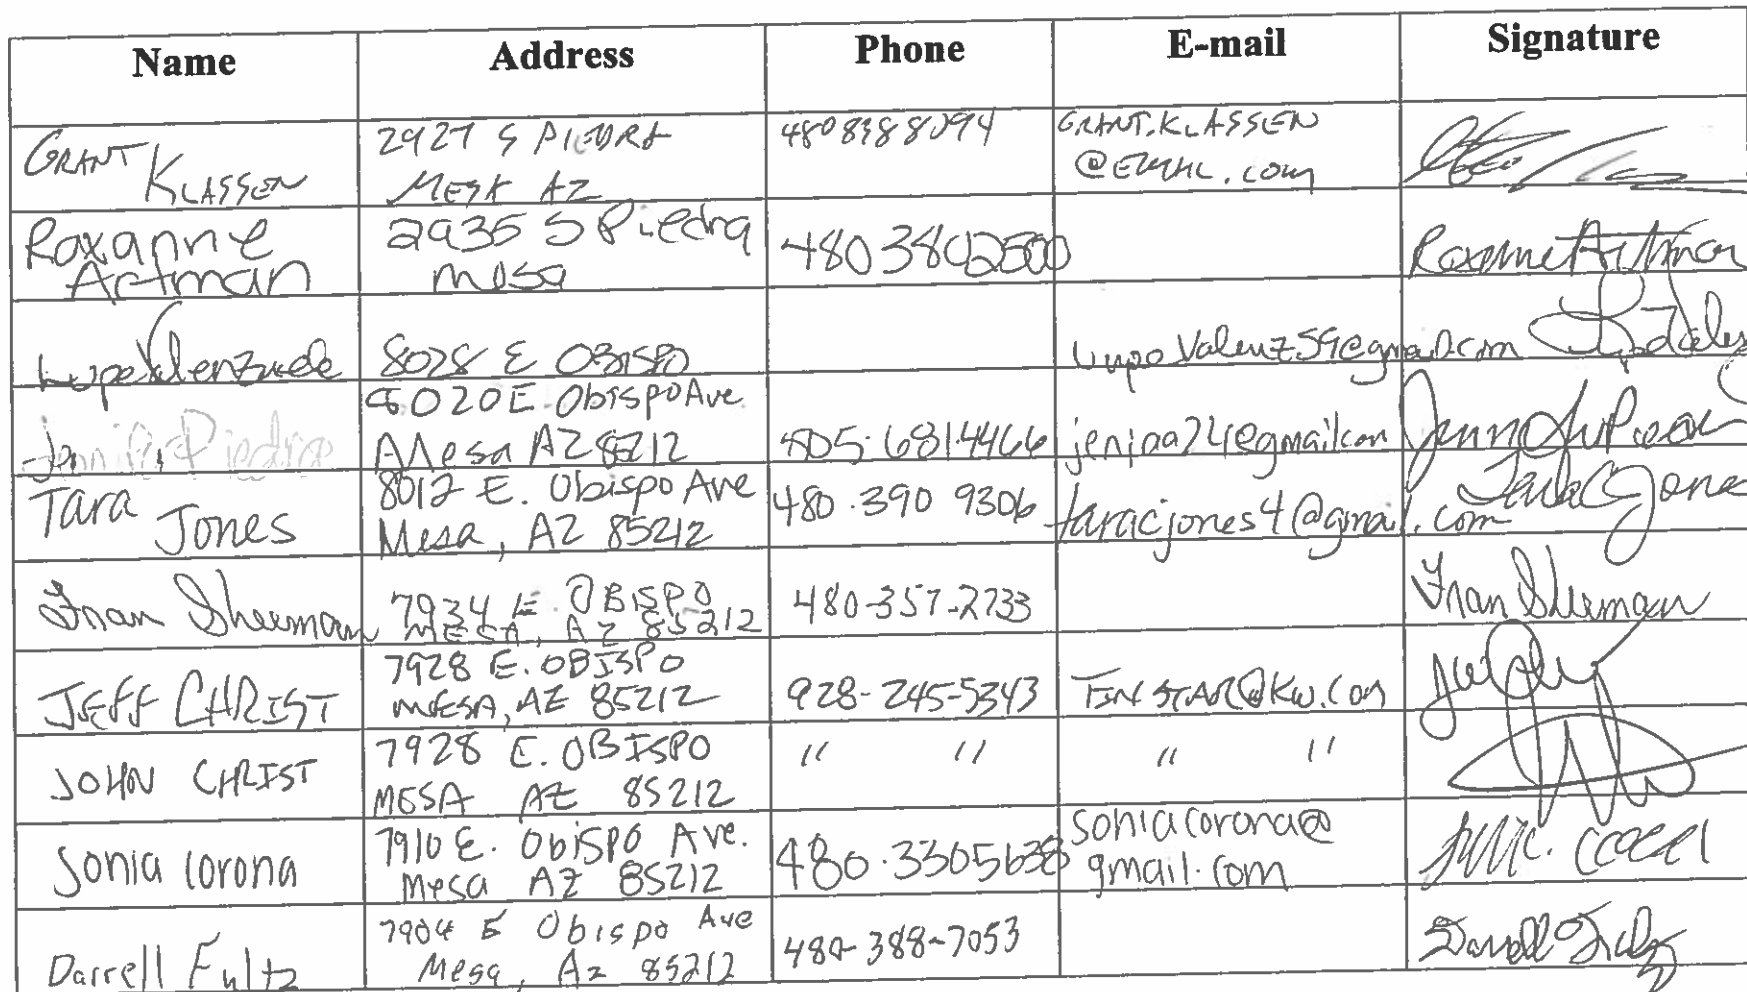 Name Address Phone E-mail Signature
GRANT KLASSEN
2927 S PIEDRA
MESA AZ
GRANT.KLASSEN
Roxanne
Artman
2935 S Piedra
mesa
480 3802500
Roxanne Artman
Lupe Valenzuela
8028 E OBISPO
Jennifer Piedra
8020 E. Obispo Ave
Mesa AZ 85212
805-6814466
Tara Jones
8012 E. Obispo Ave
Mesa, AZ 85212
480.390 9306
taracjones4@gmail.com
Tara C Jones
Fran Sherman
7934 E. OBISPO
MESA, AZ 85212
480-357-2733
Fran Sherman
JEFF CHRIST
7928 E. OBISPO
MESA, AZ 85212
928-245-5343
TINSTAR@KW.COM
JOHN CHRIST
7928 E. OBISPO
MESA AZ 85212
" "
" "
Sonia Corona
7910 E. Obispo Ave.
Mesa AZ 85212
480.3305638
soniacorona@
gmail.com
Darrell Fultz
7904 E Obispo Ave
Mesa, Az 85212
480-388-7053
Darrell Fultz